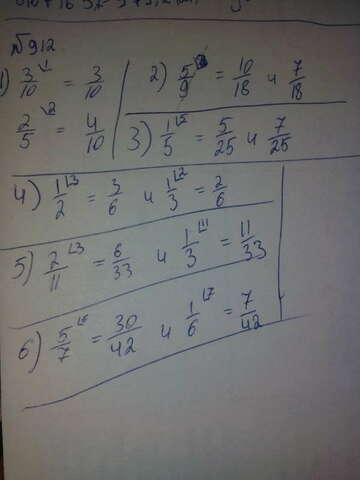 №912
1) 3/10 \1 = 3/10
2/5 \2 = 4/10
2) 5/9 \2 = 10/18 и 7/18
3) 1/5 \5 = 5/25 и 7/25
4) 1/2 \3 = 3/6 и 1/3 \2 = 2/6
5) 2/11 \3 = 6/33 и 1/3 \11 = 11/33
6) 5/7 \6 = 30/42 и 1/6 \7 = 7/42